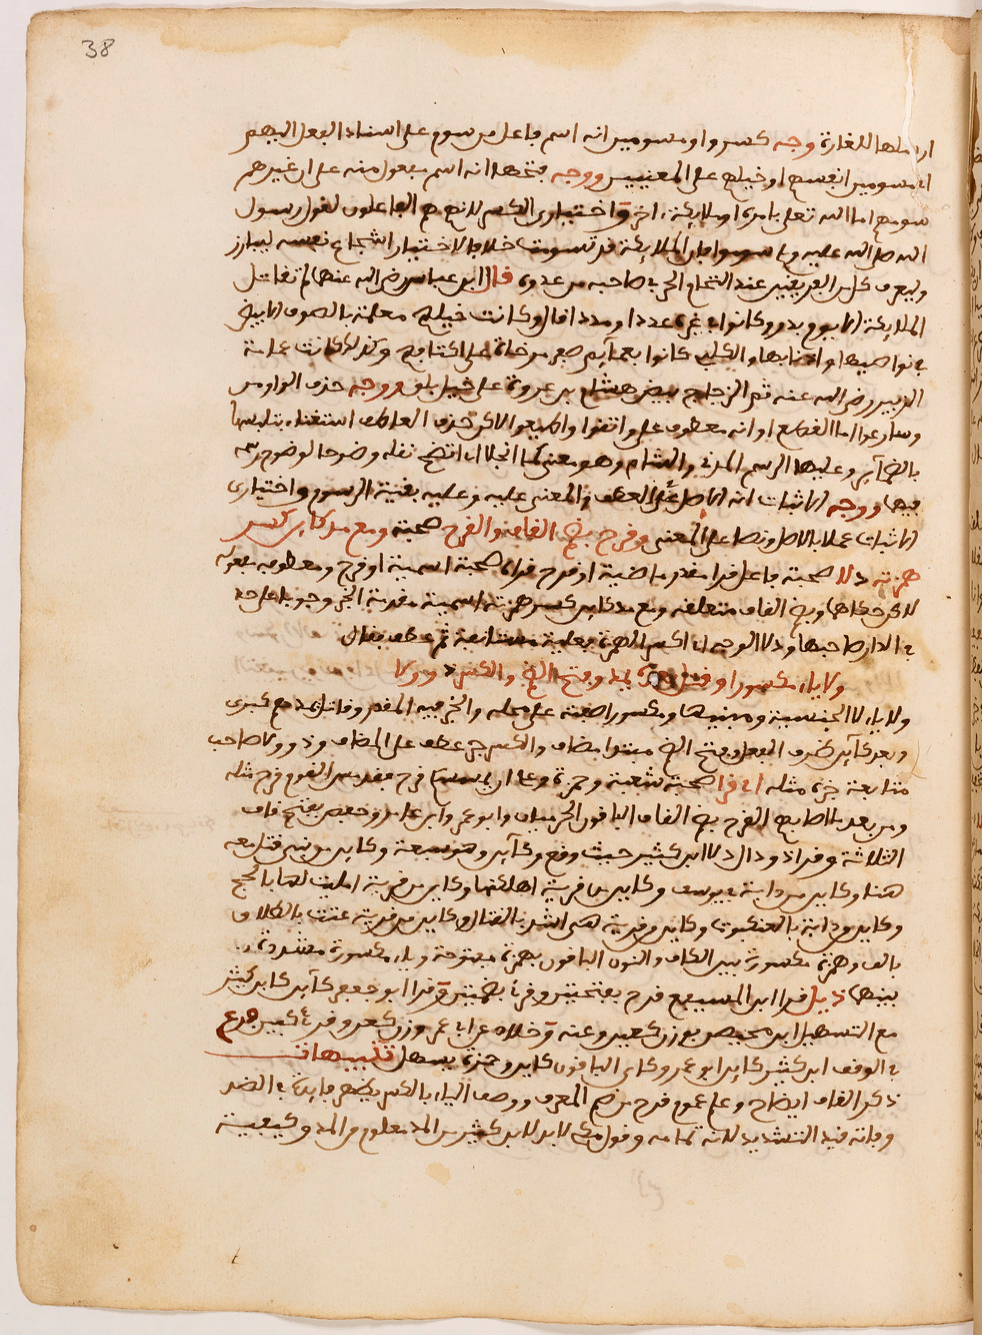 38
ارسلها للغارة وجه كسر واو مسومين انه اسم فاعل من سوم على اسناد الفعل اليهم
اي مسومين انفسهم او خيلهم على المعنيين ووجه فتحها انه اسم مفعول منه على ان غيرهم
سومهم اما الله تعلى بامره او ملايكة اخر واختياري الكسر للانهم هم الفاعلون لقول رسول
الله صلى الله عليه وسلم سوموا فان الملايكة قد تسومت خلافا لاختيار الشجاع نفسه ليبارز
وليعرف كل من الفريقين عند التحام الحرب صاحبه من عدوه قال ابن عباس رضي الله عنهما لم تقاتل
الملايكة الا يوم بدر وكانوا في غيره عددا ومددا قال وكانت خيلهم معلمة بالصوف الابيض
في نواصيها واذنابها والكلبي كانوا بعمايم صفر مرخاة على اكتافهم وكذلك كانت عمامة
الزبير رضي الله عنه ثم الزجاج بيض هشام بن عروة على خيل بلق ووجه حذف الواو من
وسارعوا اما القطع او انه معطوف على واتقوا واطيعوا لاكن حذف العاطف استغناء بتلبسها
بالضماير وعليها الرسم المدني والشام وهو معنى كما انجلا اي اتضح نقله وضوحا لوضوح رسمه
فيها ووجه الاثبات انه الاصل على العطف والمعنى عليه وعليه بقية الرسوم واختياري
الاثبات عملا بالاصل ونصا على المعنى وقرح بضم القاف والقرح صحبة ومع مد كاين كسر
همزته دلا صحبة فاعل قرا مقدر ماضية او قرح قراه صحبة اسمية او قرح ومعطوفه مفعوله
لاكن حكاهما وبضم القاف متعلقه ومع مد كاين كسر همزته اسمية مقدمة الخبر وجوبا على حد
في الدار صاحبها ودلا الوجه اي اكسر الهمزة فعلية مستانفة ثم عطف فقال
ولا ياء مكسورا وقاتل بعده يمد وفتح الضم والكسر ذو ولا
ولا ياء لا الجنسية ومبنيها ومكسورا صفته على محله والخبر فيه المقدر وقاتل يمد مع كبرى
وبعد كاين ظرف الفعل وفتح الضم مبتدا مضاف والكسر جر عطف على المضاف وذو ولا صاحب
متابعة خبره مثله اي قرا صحبة شعبة وحمزة وعلي ان يمسسكم قرح فقد مس القوم قرح مثله
ومن بعد ما اصابهم القرح بضم القاف الباقون الحرميان وابو عمرو وابن عامر وحفص بفتح قاف
الثلاثة وقرا ذو دال دلا ابن كثير حيث وقع وكاين وهو سبعة وكاين من نبي قتل معه
هنا وكاين من داية في يوسف وكاين من قرية اهلكنها وكاين من قرية امليت لها بالحج
وكاين من داية بالعنكبوت وكاين من قرية هي اشد بالقتال وكاين من قرية عتت بالطلاق
بالف وهمزة مكسورة بين الكاف والنون الباقون بهمزة مفتوحة وياء مكسورة مشددة
بينهما ذيل قرا ابن السميفع قرح بفتحتين وقرئ بضمتين وقرا ابو جعفر كاين كابن كثير
مع التسهيل ابن محيصن بوزن كعين وعنه وخلاه عن ابي عمرو وزن كعر وقرئ كيين فرع
في الوقف ابن كثير كاين ابو عمرو كاي الباقون كاين وحمزة يسهل تنبيهات
ذكر القاف ايضاح وعلم عموم قرح من ضم المعرف ووصف الياء بالكسر يظهر فايدته في الضد
وفاته قيد التشديد للانه تمامه وقول مكي لا بد لابن كثير من المد معلوم من المد وكيفية